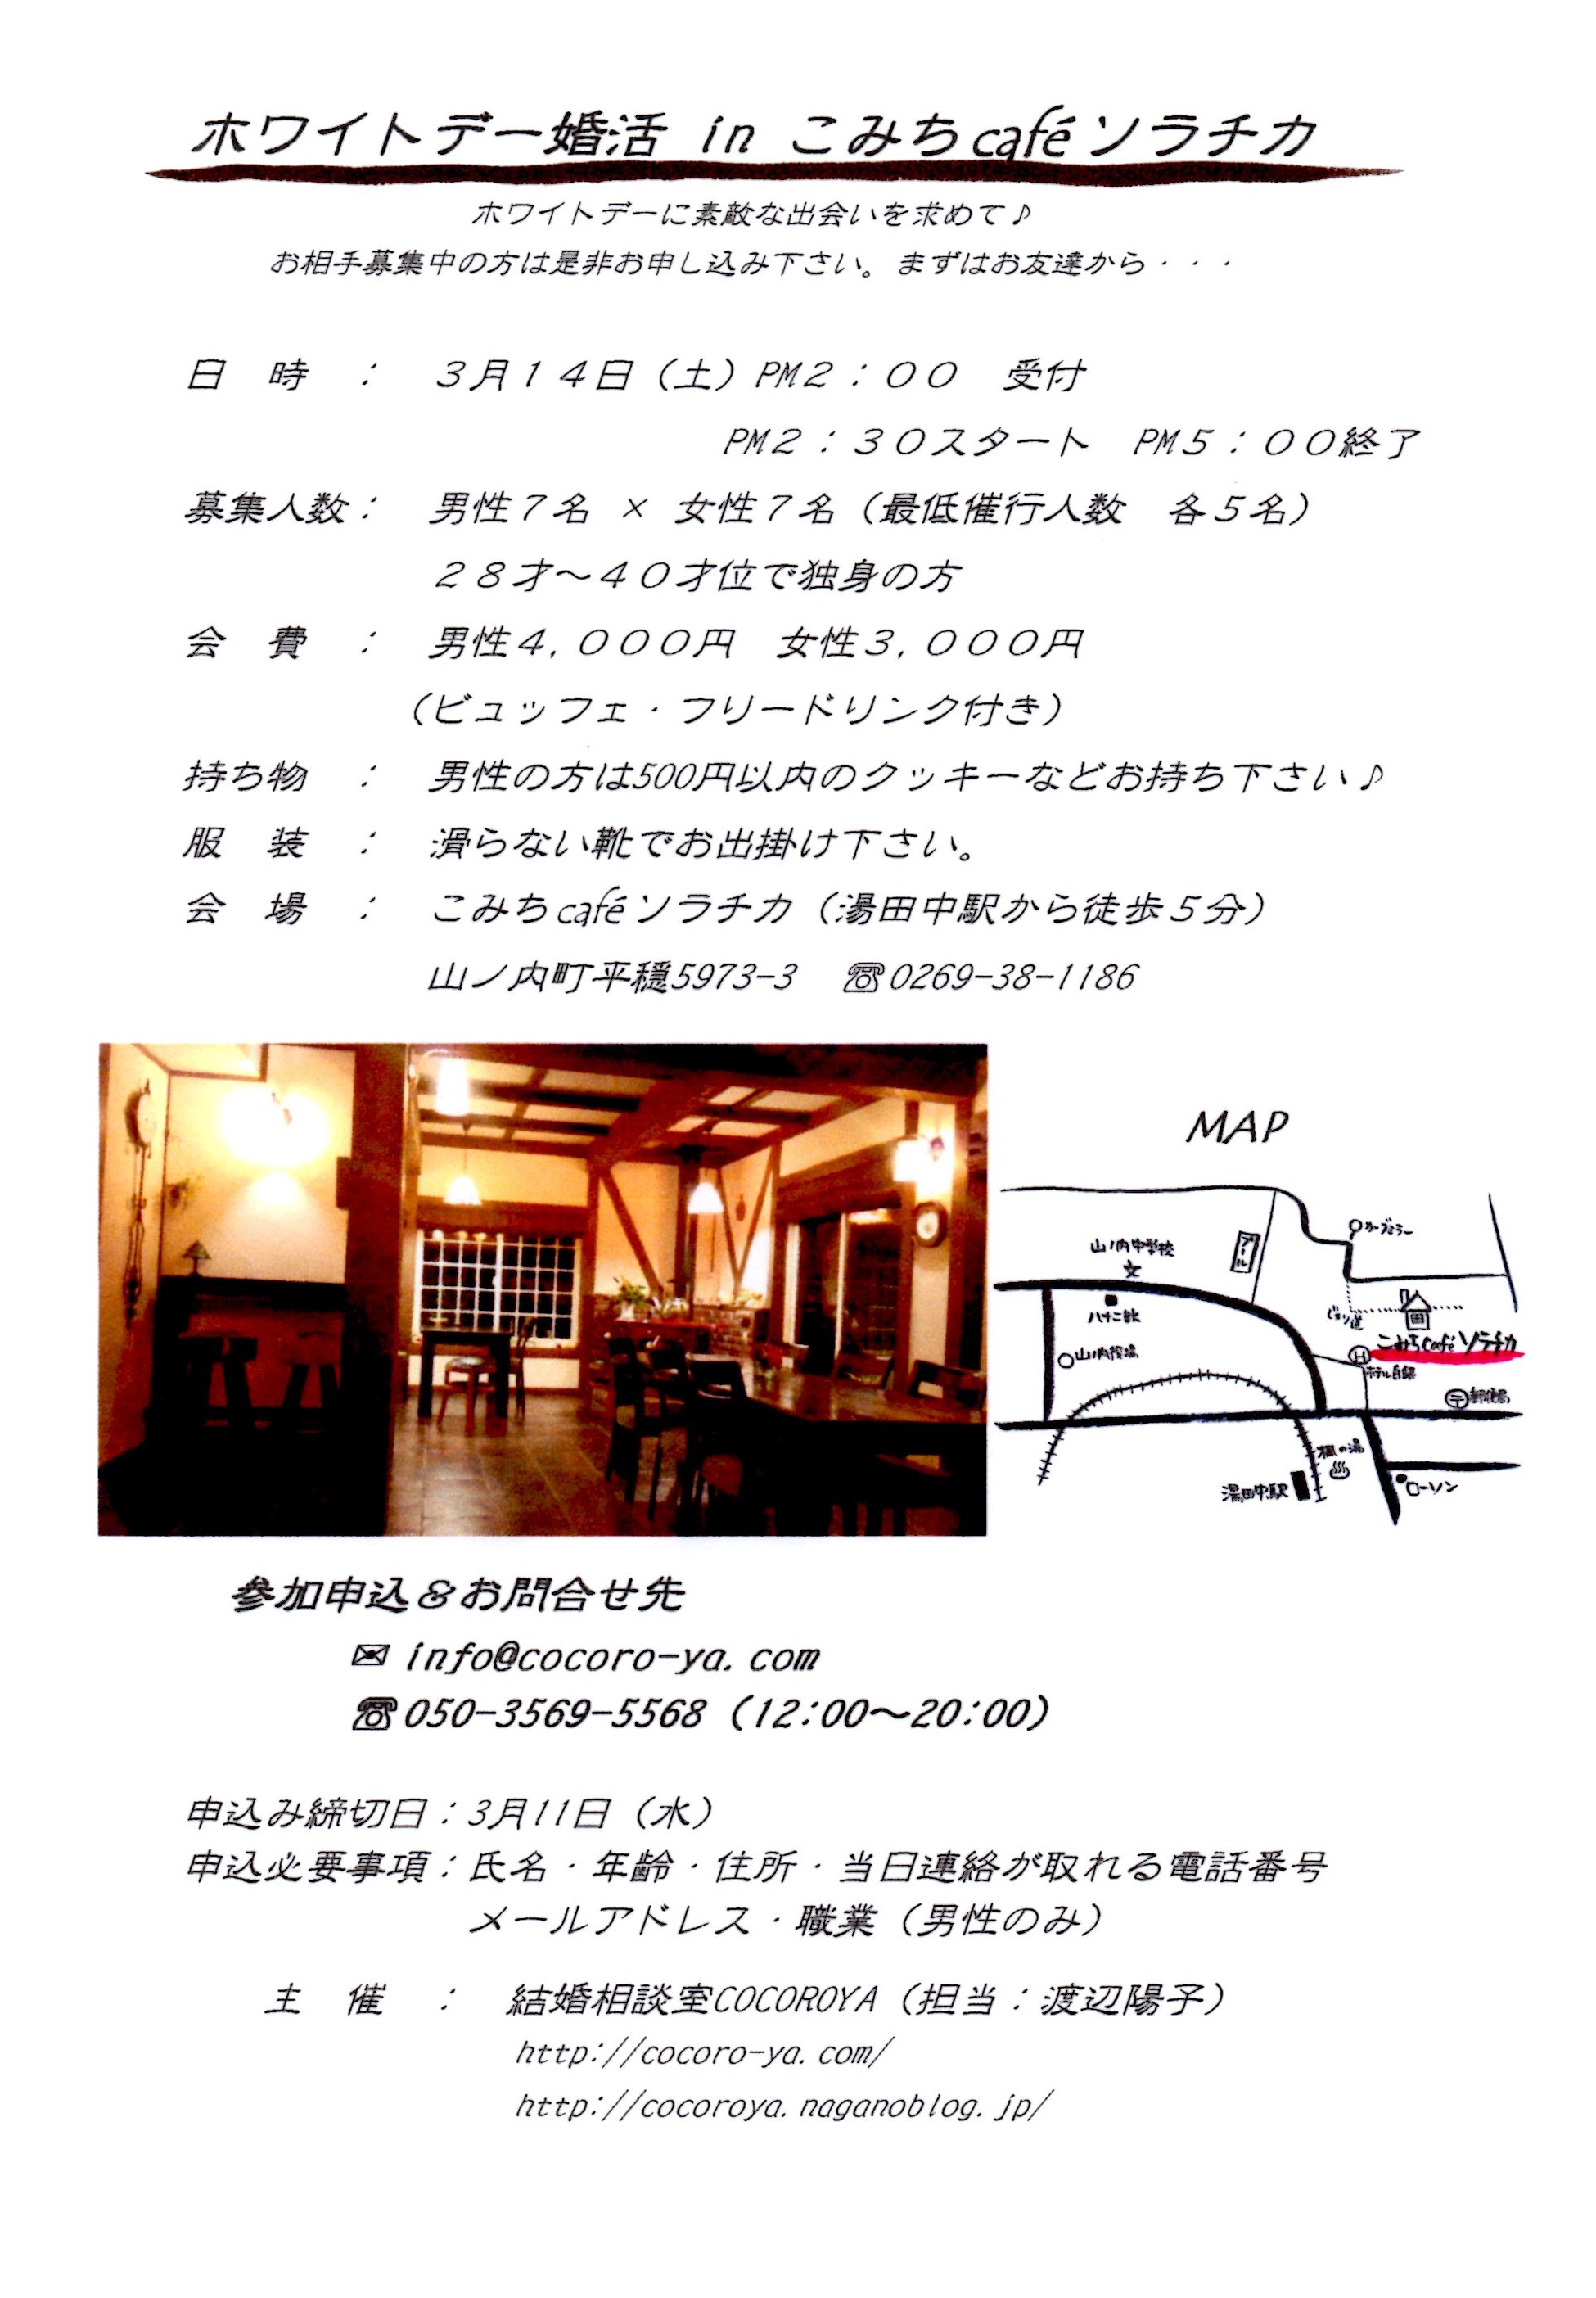 ホワイトデー婚活 in こみちcaféソラチカ
ホワイトデーに素敵な出会いを求めて♪
お相手募集中の方は是非お申し込み下さい。まずはお友達から・・・
日　時　：　３月１４日（土）PM２：００　受付
PM２：３０スタート　PM５：００終了
募集人数：　男性７名 × 女性７名（最低催行人数　各５名）
２８才～４０才位で独身の方
会　費　：　男性４，０００円　女性３，０００円
（ビュッフェ・フリードリンク付き）
持ち物　：　男性の方は500円以内のクッキーなどお持ち下さい♪
服　装　：　滑らない靴でお出掛け下さい。
会　場　：　こみちcaféソラチカ（湯田中駅から徒歩５分）
山ノ内町平穏5973-3　☎0269-38-1186
MAP
カーブミラー
山ノ内中学校
プール
文
八十二
じゃり道
こみちcaféソラチカ
山ノ内役場
H
ホテル
〒郵便局
楓の湯
湯田中駅
ローソン
参加申込＆お問合せ先
✉ info@cocoro-ya.com
☎050-3569-5568（12:00～20:00）
申込み締切日：3月11日（水）
申込必要事項：氏名・年齢・住所・当日連絡が取れる電話番号
メールアドレス・職業（男性のみ）
主　催　：　結婚相談室COCOROYA（担当：渡辺陽子）
http://cocoro-ya.com/
http://cocoroya.naganoblog.jp/